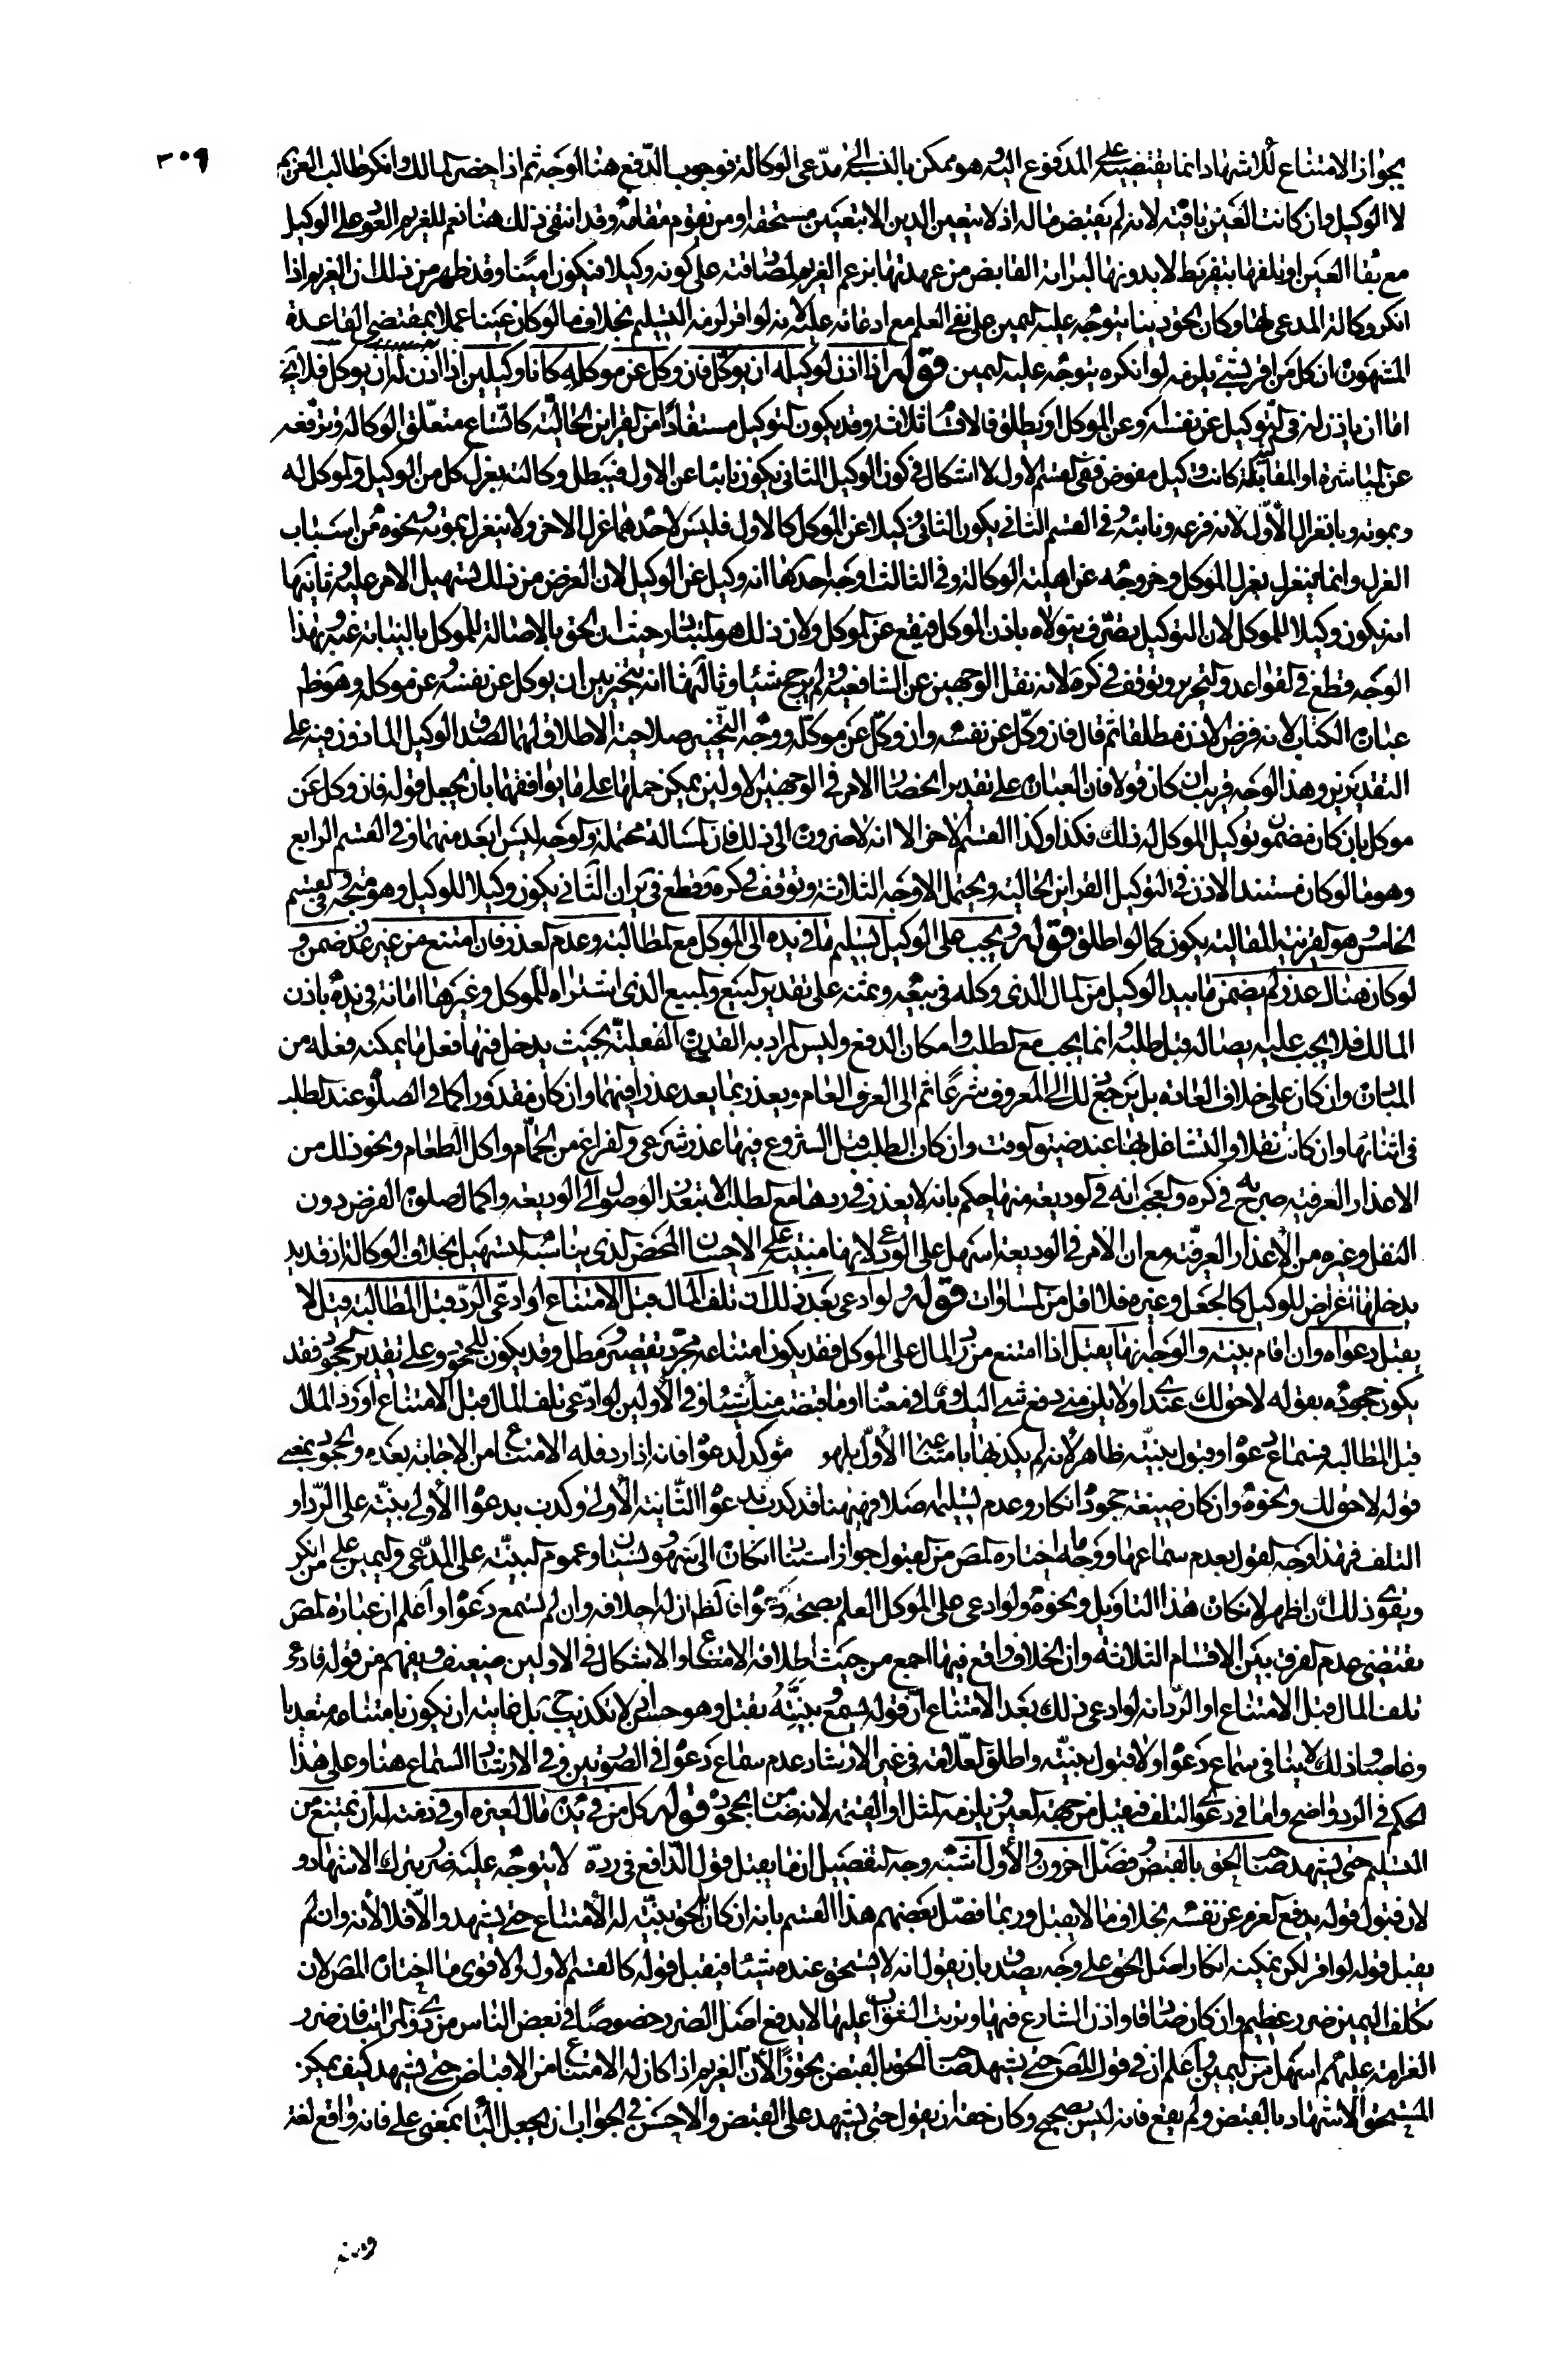 ٣٠٩
بجواز الامتناع للاشهاد انما يقتضيه على المدفوع اليه هو ممكن بالنسبة الى مدعى الوكالة فوجوب الدفع هنا اوجه ثم اذا حضر المالك وانكر طالب الغريم
لا الوكيل وان كانت العين باقية لانه لم يقبض ماله اذ لا يتعين الدين الا بتعيين مستحقه او من يقوم مقامه وقد انتفى ذلك هنا نعم للغريم العود على الوكيل
مع بقاء العين او تلفها بتفريط لا بدونها لبرائة القابض من عهدتها بزعم الغريم لمصادقته على كونه وكيلا فيكون امينا وقد ظهر من ذلك ان الغريم اذا
انكر وكالة المدعى هنا وكان الحق دينا يتوجه عليه اليمين على نفى العلم مع ادعائه عليه لانه لو اقر لزمه التسليم بخلاف ما لو كان عينا عملا بمقتضى القاعدة
المشهورة ان كل من اقر بشئ يلزمه لو انكره يتوجه عليه اليمين قوله اذا اذن لوكيله ان يوكل فان وكل عن موكله كانا وكيلين اذا اذن له ان يوكل فلا يخ
اما ان ياذن له فى التوكيل عن نفسه او عن الموكل او يطلق فالاقسام ثلاثة وقد يكون التوكيل مستفادا من القراين الحالية كاتساع متعلق الوكالة وترفعه
عن المباشرة او المقالية كانت وكيل مفوض ففى القسم الاول لا اشكال فى كون الوكيل الثانى يكون نايبا عن الاول فتبطل وكالته بعزل كل من الوكيل والموكل له
وبموته وبانعزال الاول لانه فرعه ونائبه وفى القسم الثانى يكون الثانى وكيلا عن الموكل كالاول فليس لاحدهما عزل الاخر ولا ينعزل بموته ونحوه من اسباب
العزل وانما ينعزل بعزل الموكل وخروجه عن اهلية الوكالة وفى الثالث اوجه احدها انه وكيل عن الوكيل لان الغرض من ذلك تسهيل الامر عليه ثانيها
انه يكون وكيلا للموكل لان التوكيل تصرف يتولاه باذن الموكل فيقع عن الموكل ولان ذلك هو المتبادر حيث ان الحق بالاصالة للموكل بالنيابة عنه وبهذا
الوجه قطع فى القواعد والتحرير وتوقف فى كره لانه نقل الوجهين عن الشافعية ولم يرجح شيئا وثالثها انه يتخير بين ان يوكل عن نفسه وعن موكله وهو ظ
عبارة الكتاب لانه فرض الاذن مطلقا ثم قال فان وكل عن نفسه وان وكل عن موكله ووجه التخيير صلاحية الاطلاق لهما لصدق الوكيل الماذون فيه على
التقديرين وهذا الوجه قريب ان كان قولا فان العبارة على تقدير انحصار الامر فى الوجهين الاولين يمكن حملها على ما يوافقهما بان يجعل قوله فان وكل عن
موكله بان كان مضمون توكيل الموكل له ذلك فكذا وكذا القسم الاخر الا انه لا ضرورة الى ذلك فان المسالة محتملة والوجه ليس ابعد منهما وفى القسم الرابع
وهو ما لو كان مستند الاذن فى التوكيل القراين الحالية ويحتمل الاوجه الثلاثة وتوقف فى كره وقطع فى ير ان الثانى يكون وكيلا للوكيل وهو متجه وفى القسم
الخامس وهو القرينة المقالية يكون كما لو اطلق قوله ويجب على الوكيل تسليم ما فى يده الى الموكل مع المطالبة وعدم العذر فان امتنع من غير عذر ضمن و
لو كان هناك عذر لم يضمن ما بيد الوكيل من المال الذى وكله فى بيعه وثمنه على تقدير البيع والمبيع الذى اشتراه للموكل وغيرها امانة فى يده باذن
المالك فلا يجب عليه ايصاله قبل طلبه وانما يجب مع الطلب وامكان الدفع وليس المراد به القدرة الفعلية بحيث يدخل فيها فعل ما يمكنه فعله من
المبادرة وان كان على خلاف العادة بل يرجع ذلك الى المعروف شرعا ثم الى العرف العام ويعذر بما يعد عذرا فيهما وان كان مقدورا كما فى الصلوة عند الطلب
فى اثنائها وان كانت نفلا والتشاغل بها عند ضيق الوقت وان كان الطلب قبل الشروع فيها عذر شرعى والفراغ من الحمام واكل الطعام ونحو ذلك من
الاعذار العرفية صرح به فى كره والعجب انه فى الوديعة منها حكم بانه لا يعذر فى ردها مع الطلب الا بتعذر الوصول الى الوديعة واكمال صلوة الفرض دون
النفل وغيره من الاعذار العرفية مع ان الامر فى الوديعة اسهل على الودعى لانها مبنية على الاحسان المحض الذى يناسبه التسهيل بخلاف الوكالة اذ قد
يدخلها اغراض للوكيل كالجعل وغيره فلا اقل من المساوات قوله ولو ادعى بعد ذلك ان تلف المال قبل الامتناع او ادعى الرد قبل المطالبة قيل لا
يقبل دعواه وان اقام بينة والوجه انها يقبل اذا امتنع من رد المال على الموكل فقد يكون امتناعه مجرد تقصير ومطل وقد يكون للجحود وعلى تقدير الجحود فقد
يكون جحوده بقوله لا حق لك عندى او لا يلزمنى دفع شئ اليك وما فى معناه او ما قبضت منك شيئا وفى الاولين لو ادعى تلف المال قبل الامتناع او رد المال
قبل المطالبة فسماع دعواه وقبول بينته ظاهر لانه لم يكذبها بامتناعه الاول بل هو مؤكد لدعواه فانه اذا رد فله الامتناع من الاجابة بعده والجحود بمعنى
قوله لا حق لك ونحوه وان كان صيغة جحوده انكار وعدم تسليم اصلا فهيهنا قد كذب بدعواه الثانية الاولى وكذب بدعواه الاولى بينته على الرد او
التلف فهذا وجه القول بعدم سماعها ووجه ما اختاره المصَ من القبول جواز استناد انكاره الى سهو ونسيان وعموم البينة على المدعى واليمين على من انكر
ويقوى ذلك ان اظهر لانكاره هذا التاويل ونحوه ولو ادعى على الموكل العلم بصحة دعواه فالظ ان له احلافه وان لم تسمع دعواه واعلم ان عبارة المصَ
تقتضى عدم الفرق بين الاقسام الثلاثة وان الخلاف واقع فيها اجمع من حيث اطلاقه الامتناع والاشكال فى الاولين ضعيف ويفهم من قوله فادعى
تلف المال قبل الامتناع او الرد انه لو ادعى ذلك بعد الامتناع ان قوله يسمع وبينته تقبل وهو حسن اذ لا تكذيب ح بل غايته ان يكون بامتناعه متعديا
وغاصبا وذلك لا ينافى سماع دعواه ولا قبول بينته واطلق العلامة فى غير الارشاد عدم سماع دعواه فى الصورتين وفى الارشاد السماع هنا وعلى هذا
الحكم فى الرد واضح واما فى دعوى التلف فيقبل من جهة العين ويلزمه المثل او القيمة لانه ضمن بالجحود قوله كل من فى يده مال لغيره او فى ذمته له ان يمتنع من
التسليم حتى يشهد صاحب الحق بالقبض وفصل اخرون والاول اشبه وجه التفصيل ان ما يقبل قول الدافع فى رده لا يتوجه عليه ضرر بترك الاشهاد و
لان قبول قوله يدفع الغرم عن نفسه بخلاف ما لا يقبل وربما فصل بعضهم هذا القسم بانه ان كان بالحق بينة له الامتناع حتى يشهد والا فلا لانه وان لم
يقبل قوله لو اقر لكن يمكنه انكار اصل الحق على وجه يصدق بان يقول انه لا يستحق عنده شيئا فيقبل قوله كالقسم الاول والاقوى ما اختاره المصَ لان
تكلف اليمين ضرر عظيم وان كان صادقا واذن الشارع فيها وترتب الثواب عليها لا يدفع اصل الضرر خصوصا فى بعض الناس من ذوى المراتب فان ضرر
الغرامة عليهم اسهل من اليمين واعلم ان فى قول المصَ حتى يشهد صاحب الحق بالقبض تجوزا لان الغريم اذا كان له الامتناع من الاقباض حتى يشهد كيف يمكن
المستحق الاشهاد بالقبض ولم يقع فانه ليس بصحيح وكان حقه ان يقول حتى يشهد على القبض والاحسن فى الجواب ان يجعل الباء بمعنى على فانه واقع لغة